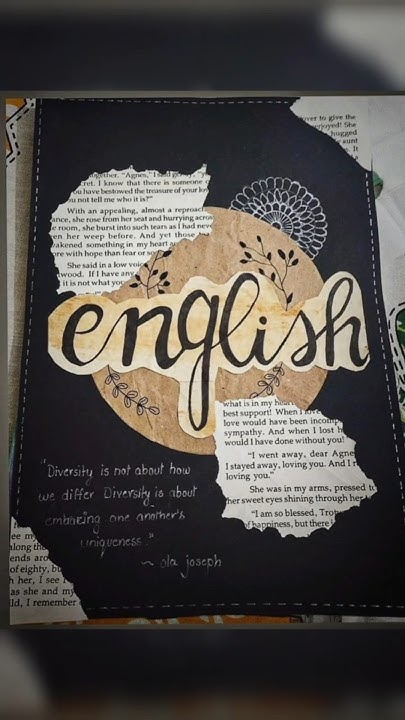 over to give the
overjoyed! She
hugged
aunt
It
together. "Agnes," I said
secret. I know that there is someone
you have bestowed the treasure of your lov
you not tell me who it is?"
With an appealing, almost a reproac
ance, she rose from her seat and hurrying across
room, she burst into such tears as I had neve
en her weep before. And yet those
wakened something in my heart
ore with hope than fear or
She said in a low voic
twood. If I have any
it is not what you
english
what is in my heart
best support! When I
love would have been incomp
sympathy. And when I lost h
would I have done without you!
"I went away, dear Agne
I stayed away, loving you. And I r
loving you."
She was in my arms, pressed to
her sweet eyes shining through her
"I am so blessed, Trot
of happiness, but there
"Diversity is not about how
we differ Diversity is about
embracing one another's
uniqueness."
~ ola joseph
ee my
along the
ends aro
of eighty, bu
h her, I see
as she and my
ld, I remember